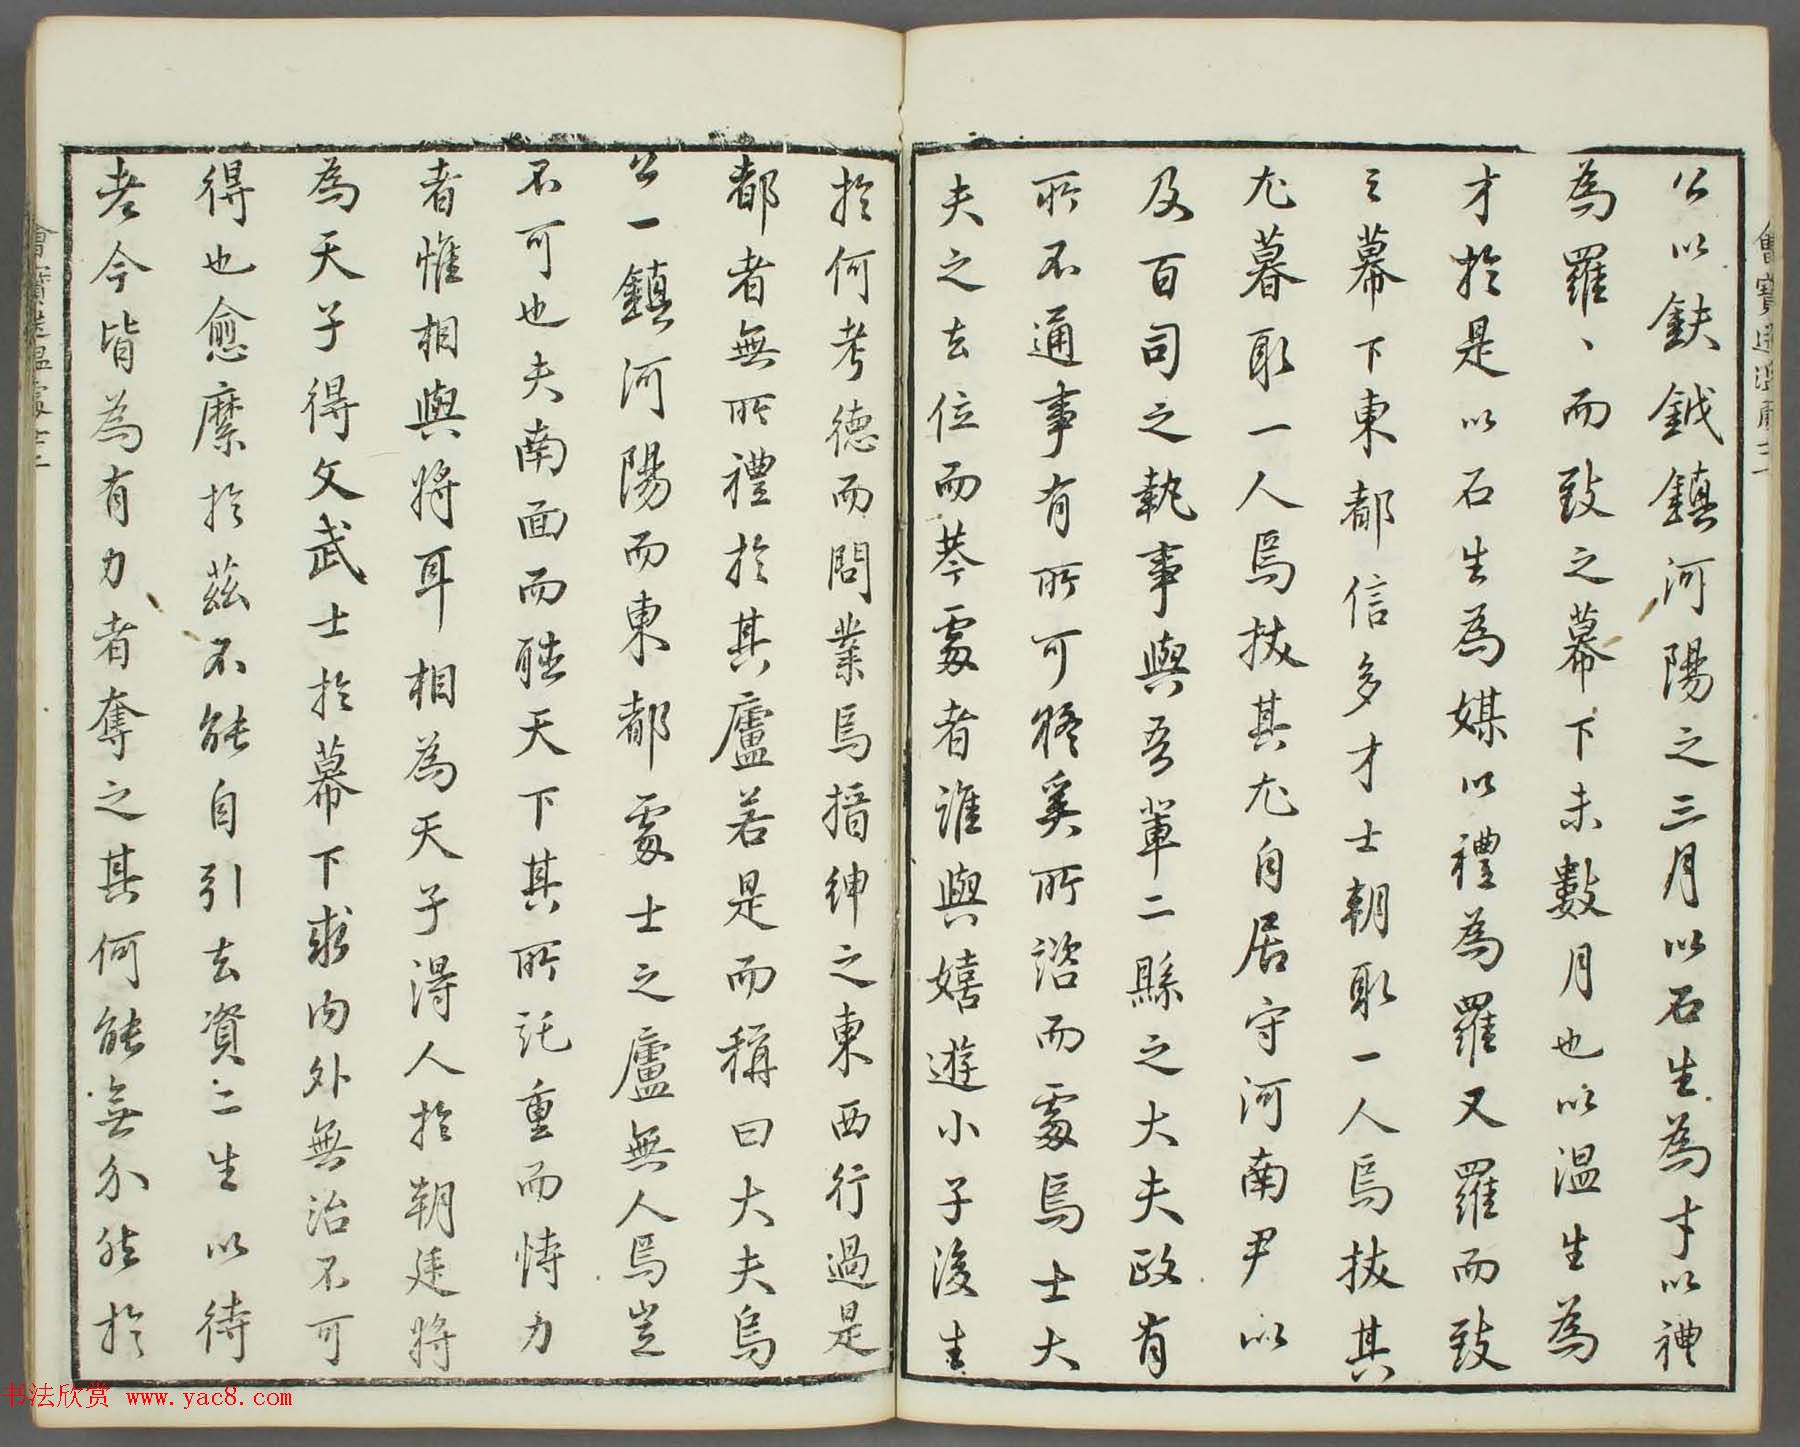 公以鈇鉞鎮河陽之三月以石生為才以禮
為羅、而致之幕下未數月也以溫生為
才於是以石生為媒以禮為羅又羅而致
之幕下東都信多才士朝取一人焉拔其
尤暮取一人焉拔其尤自居守河南尹以
及百司之執事與吾輩二縣之大夫政有
所不通事有所可疑奚所諮而處焉士大
夫之去位而巷處者誰與嬉遊小子後生
於何考德而問業焉搢紳之東西行過是
都者無所禮於其廬若是而稱曰大夫烏
公一鎮河陽而東都處士之廬無人焉豈
不可也夫南面而聽天下其所託重而恃力
者惟相與將耳相為天子得人於朝廷將
為天子得文武士於幕下求內外無治不可
得也愈縻於茲不能自引去資二生以待
老今皆為有力者奪之其何能無介然於
书法欣赏 www.yac8.com